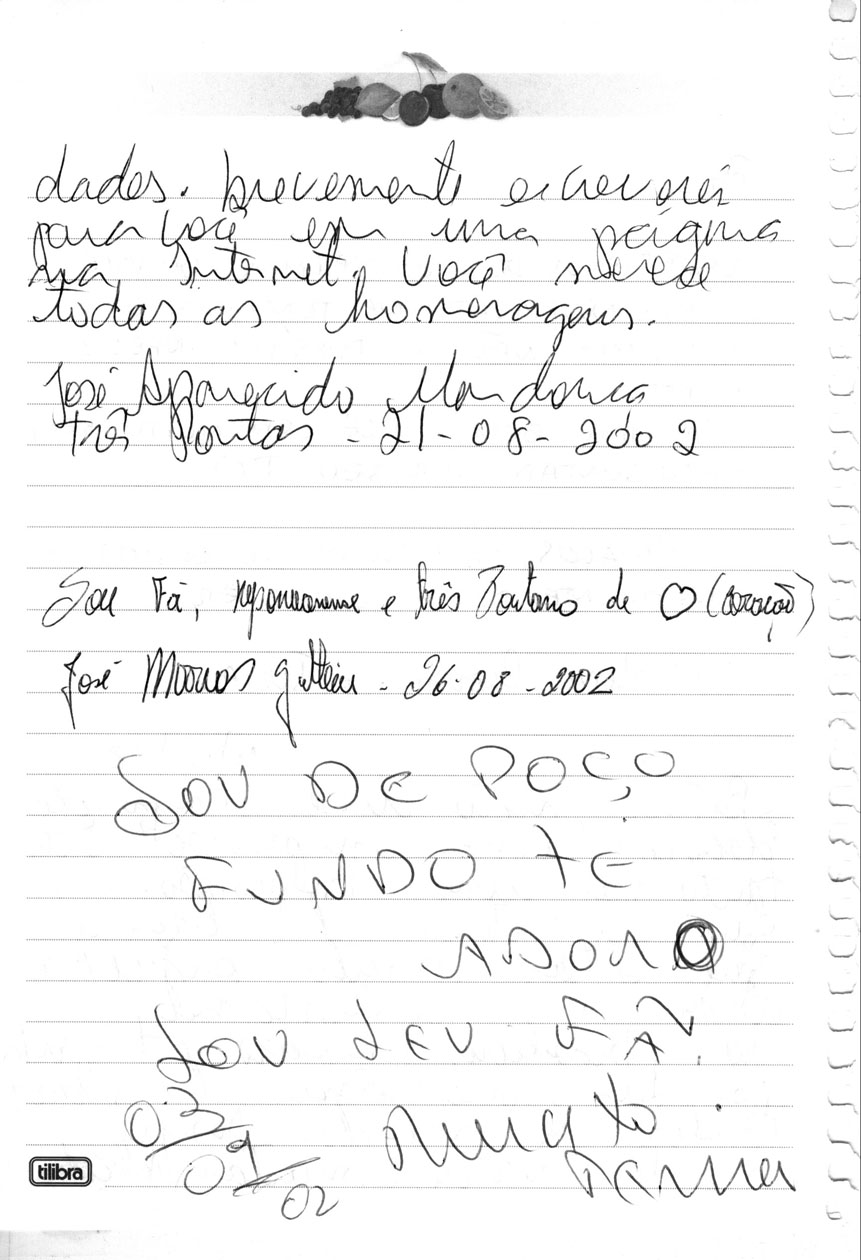 dades. brevemente escreverei
para você em uma página
na Internet. Você merece
todas as homenagens.
José Aparecido Mendonça
três Pontas - 21-08-2002
Sou Fã, e três Pontano de ♡ (coração)
José Marcos - 26-08-2002
SOU DE POÇO
FUNDO TE
ADORO
SOU SEU FÃ
03/09/02 Renato
tilibra